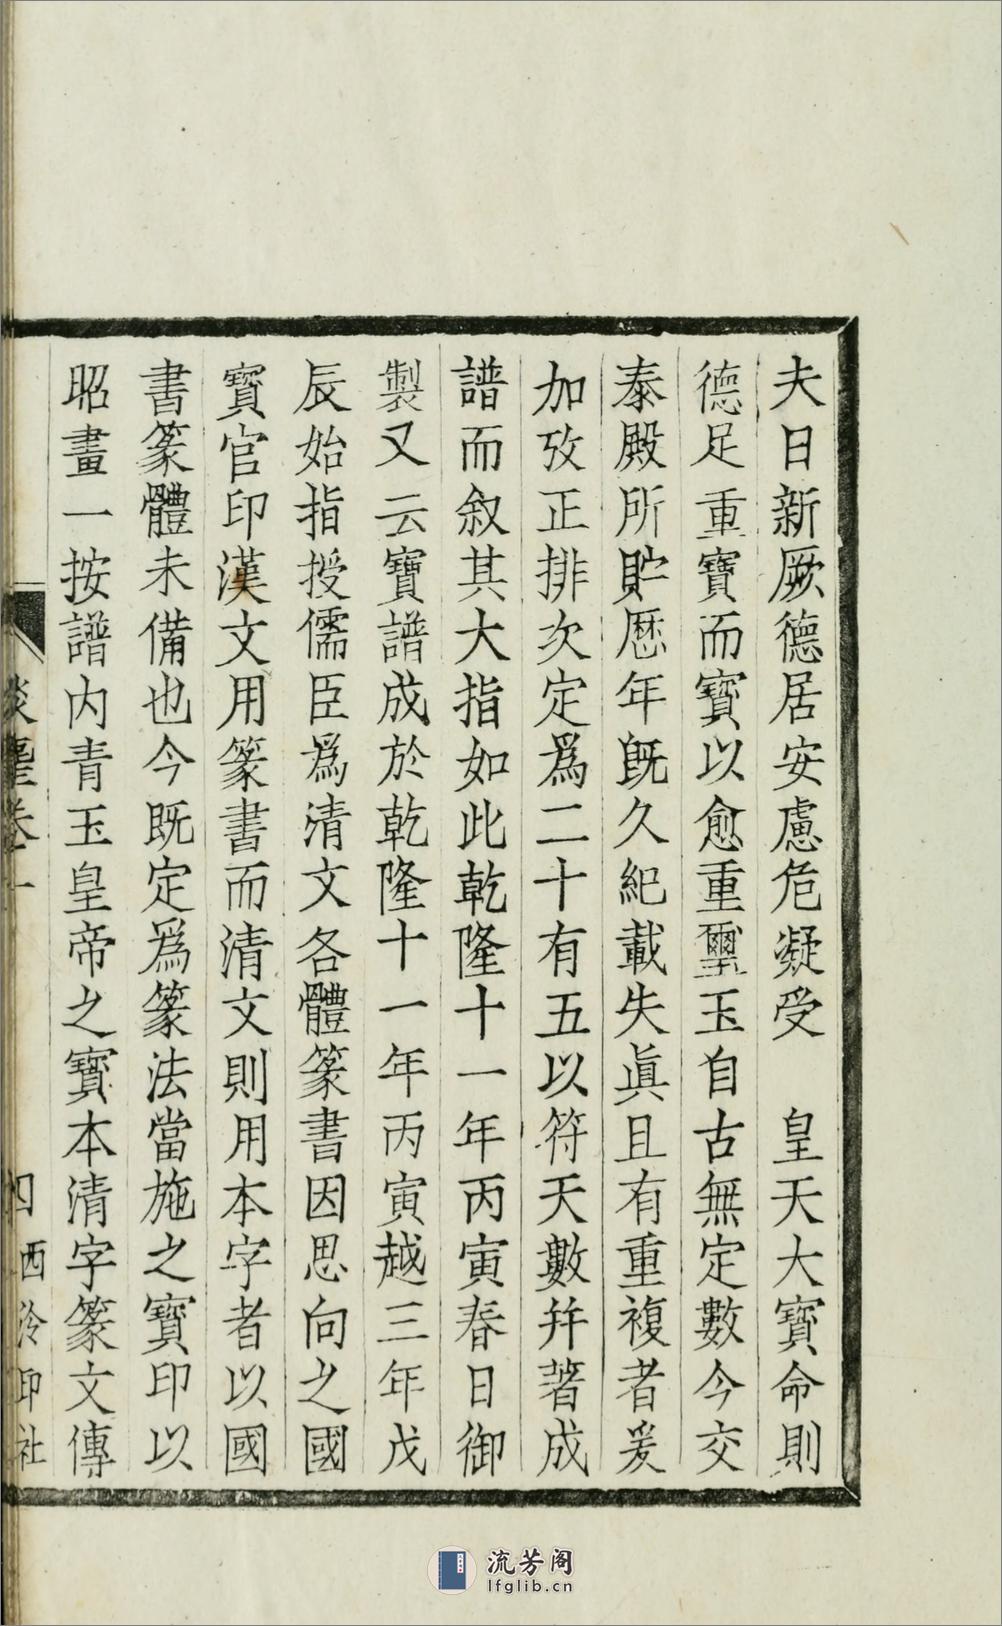 夫日新厥德居安慮危凝受　皇天大寶命則
德足重寶而寶以愈重璽玉自古無定數今交
泰殿所貯厯年旣久紀載失眞且有重複者爰
加攷正排次定爲二十有五以符天數幷著成
譜而叙其大指如此乾隆十一年丙寅春日御
製又云寶譜成於乾隆十一年丙寅越三年戊
辰始指授儒臣爲清文各體篆書因思向之國
寶官印漢文用篆書而清文則用本字者以國
書篆體未備也今既定爲篆法當施之寶印以
昭畫一按譜内青玉皇帝之寶本清字篆文傳
談麈卷一
四
西泠印社
流芳阁
lfglib.cn